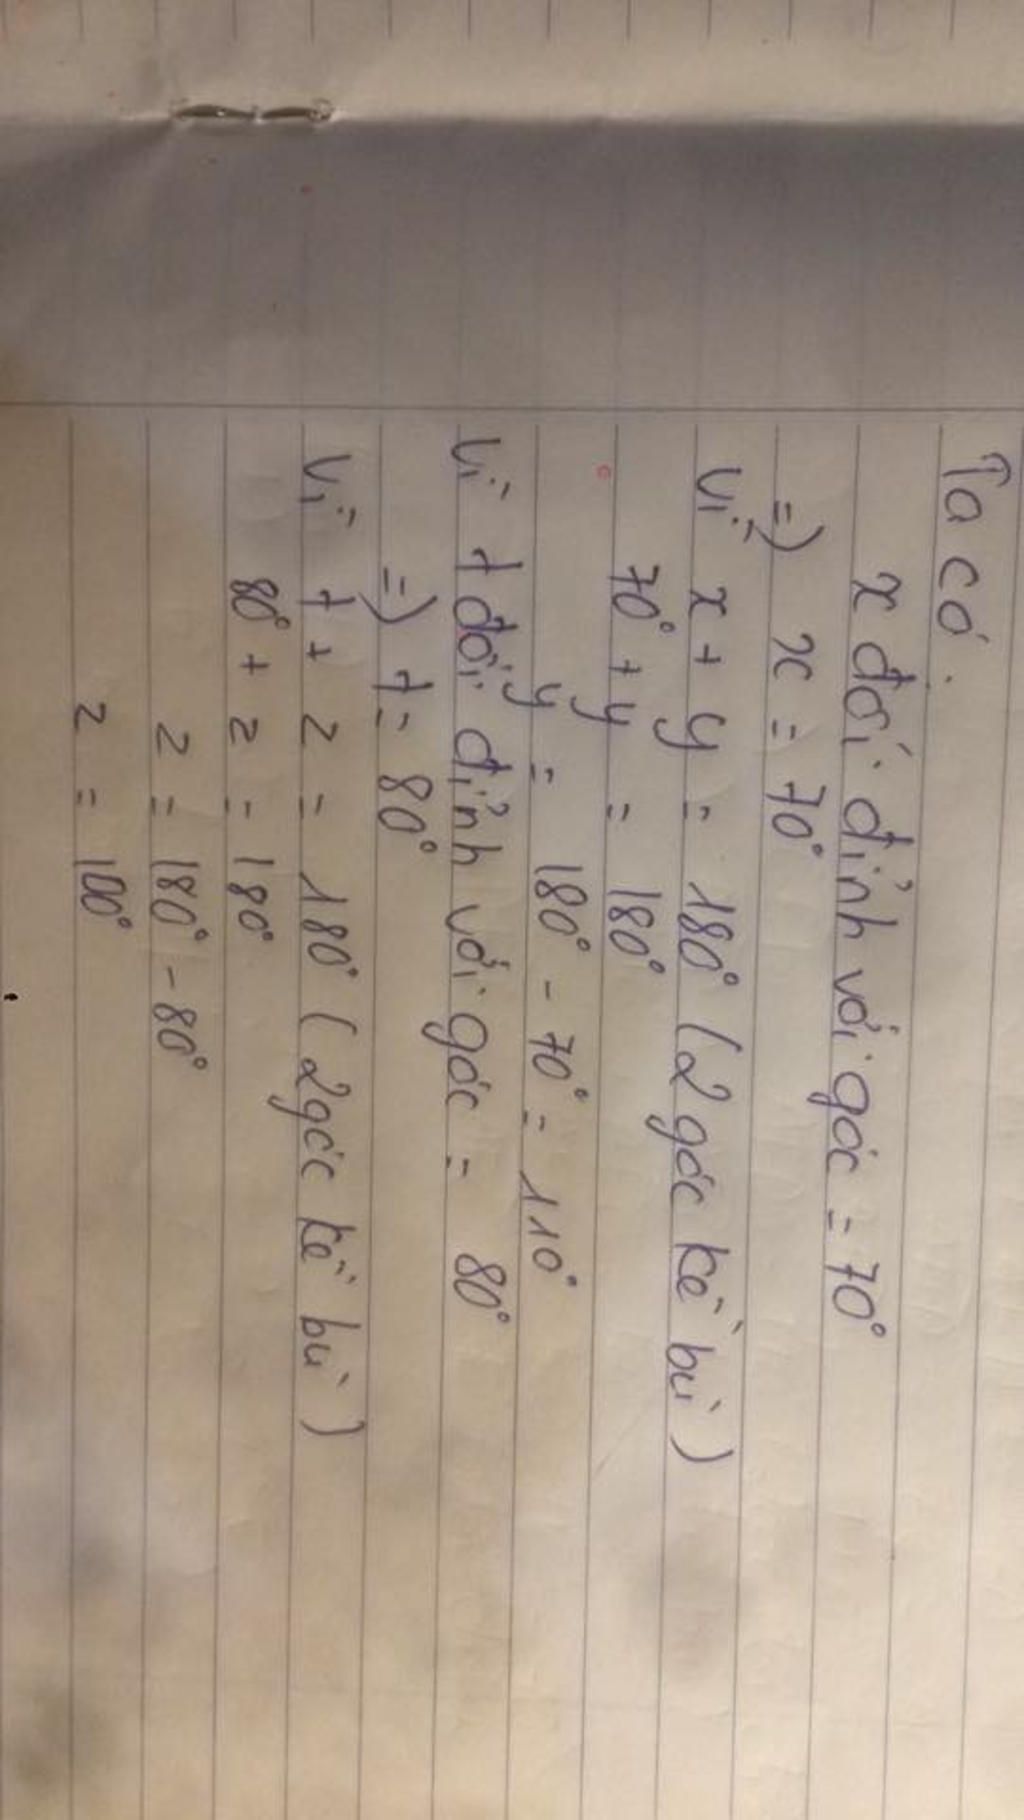 Ta có:
x đối đỉnh với góc = 70°
=) x = 70°
Vì x + y = 180° (2 góc kề bù)
70° + y = 180°
y = 180° - 70° = 110°
Vì t đối đỉnh với góc = 80°
=) t = 80°
Vì t + z = 180° (2 góc kề bù)
80° + z = 180°
z = 180° - 80°
z = 100°